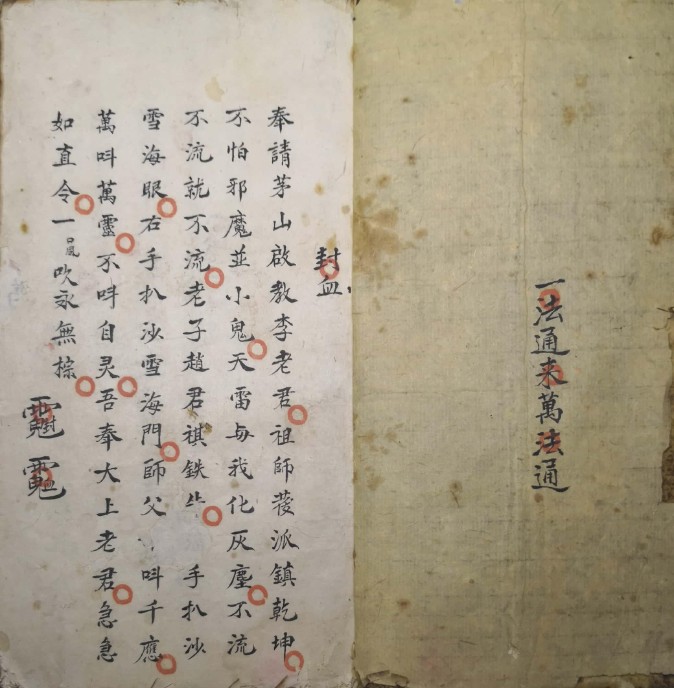 一法通来萬法通
封血
奉請茅山啟教李老君祖師發派鎮乾坤
不怕邪魔並小鬼天雷与我化灰塵不流
不流就不流老子趙君祺鉄牛手扒沙
雪海眼右手扒沙雪海門師父呌千應
萬呌萬靈不呌自灵吾奉大上老君急急
如直令一口風吹永無棕